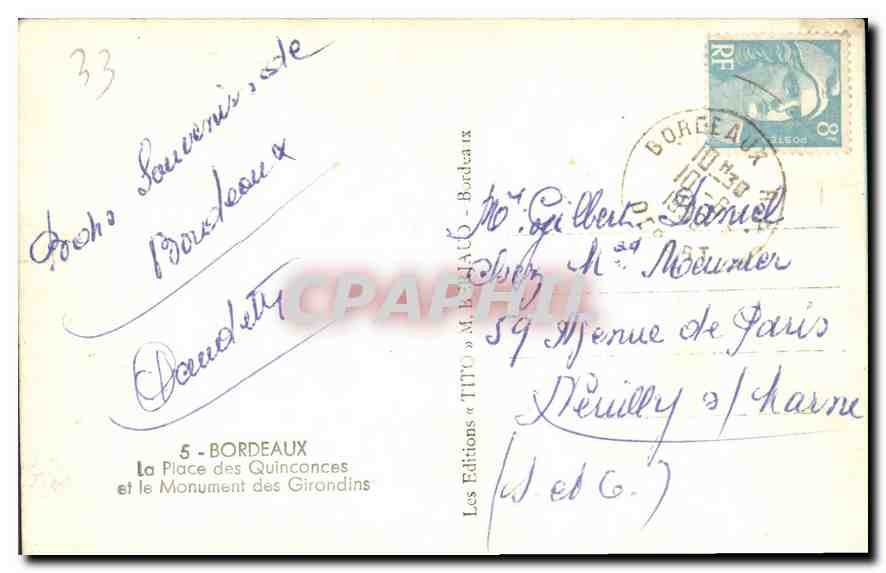 33
Bons Souvenirs de
Bordeaux
5 - BORDEAUX
La Place des Quinconces
et le Monument des Girondins
Les Editions « TITO » M. BERJAUD - Bordeaux
RF
POSTE
8F
BORDEAUX
10 H 30
10 - 8
Mr. Gilbert Daniel
Chez Mad Meunier
59 Avenue de Paris
Neuilly s/ Marne
(S. et O.)
CPAPHIL